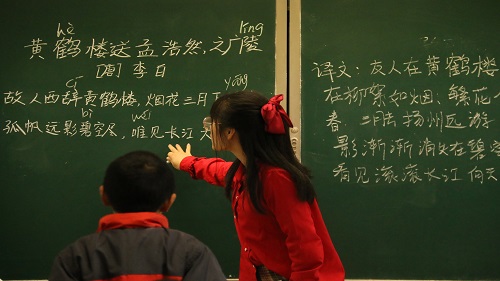 hè líng
黄鹤楼送孟浩然之广陵
[唐] 李白
cí yáng
故人西辞黄鹤楼,烟花三月下
bì wéi
孤帆远影碧空尽,唯见长江天
译文:友人在黄鹤楼
在柳絮如烟、繁花
春三月去扬州远游
影渐渐消失在碧空
看见滚滚长江向天